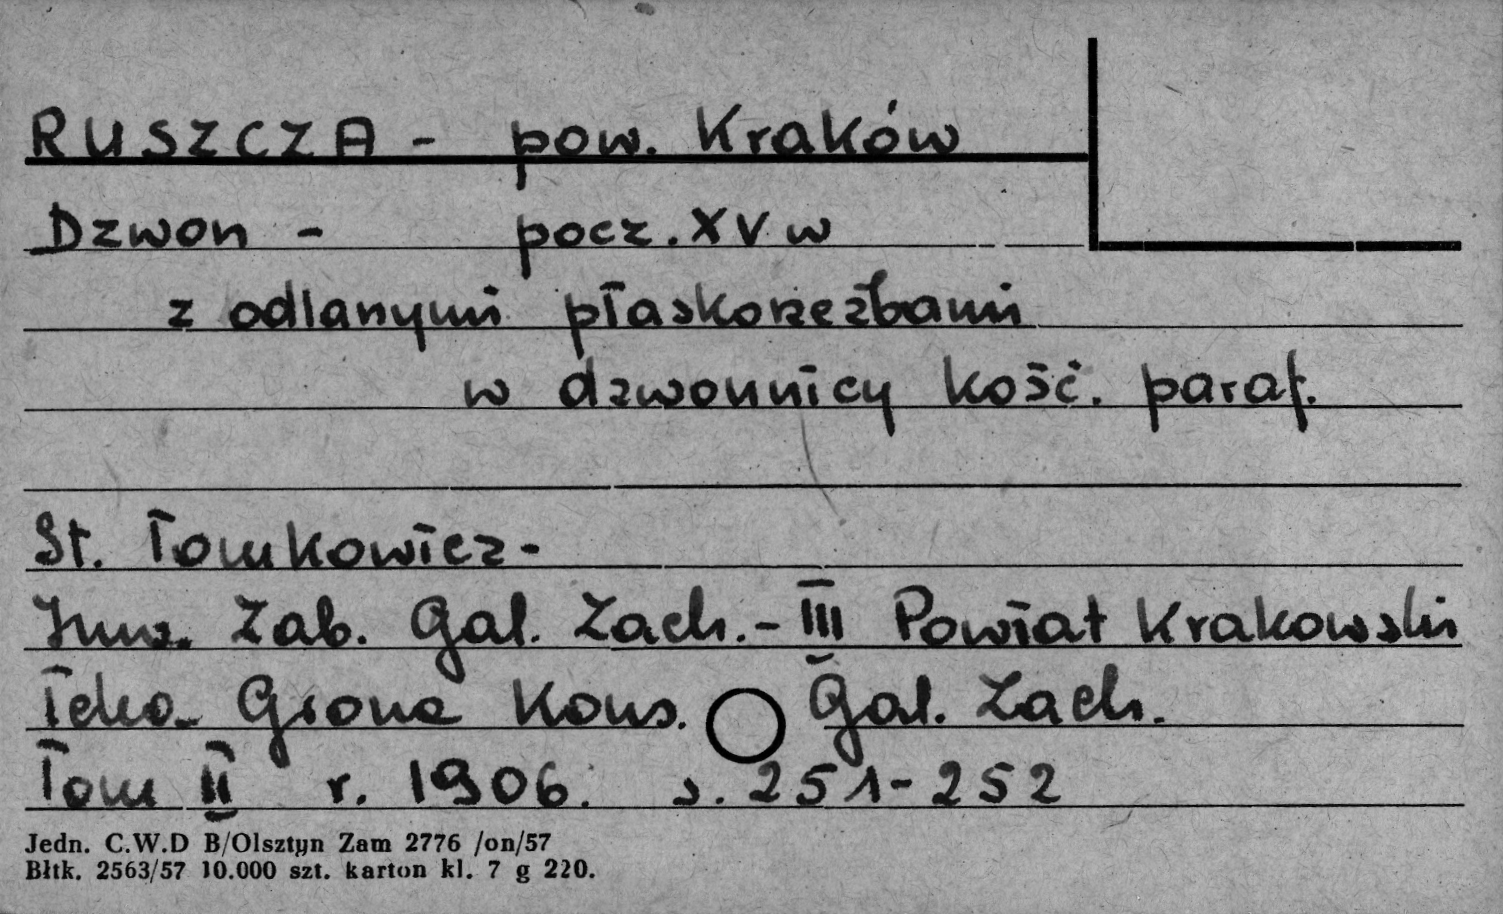 RUSZCZA - pow. Kraków
Dzwon - pocz. XV w
z odlanymi płaskorzeźbami
w dzwonnicy kość. paraf.
St. Tomkowicz -
Inw. Zab. Gal. Zach. - III Powiat Krakowski
Teka Grona Kons. Gal. Zach.
Tom II r. 1906. s. 251-252
Jedn. C.W.D B/Olsztyn Zam 2776 /on/57
Błtk. 2563/57 10.000 szt. karton kl. 7 g 220.